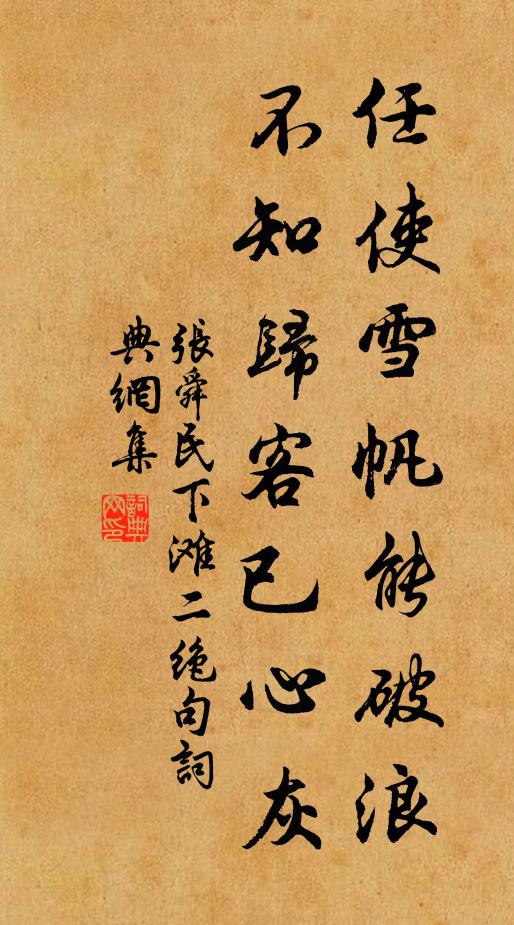 任使雪帆能破浪
不知歸客已心灰
張舜民下滩二絶句詞
典網集
詞典
网印